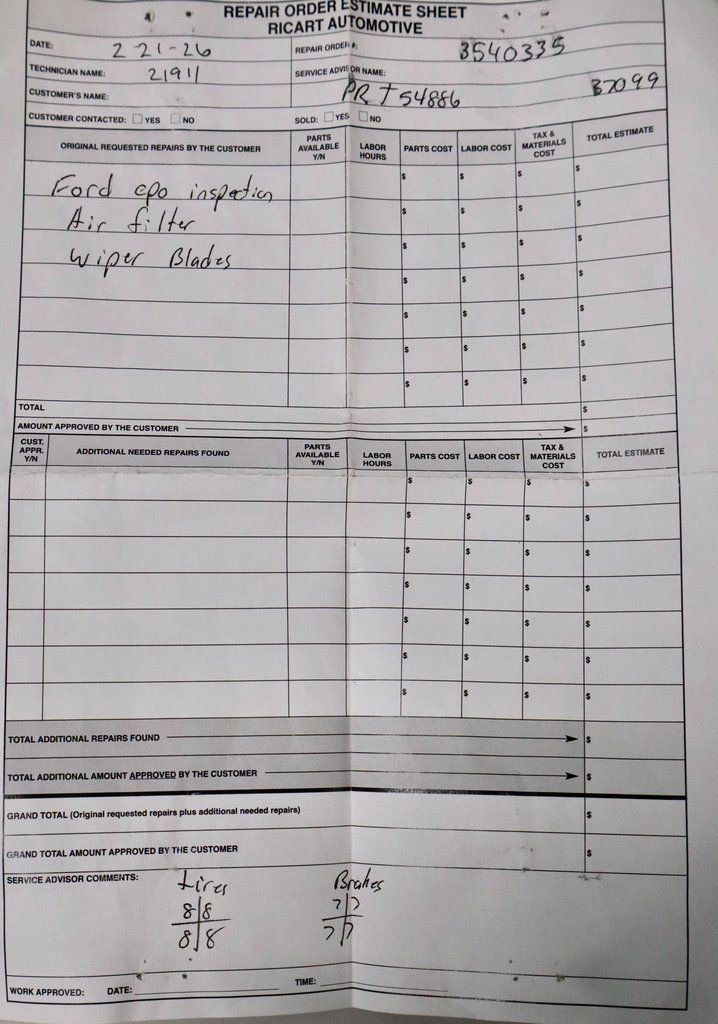 REPAIR ORDER ESTIMATE SHEET
RICART AUTOMOTIVE
DATE: 2-21-26 REPAIR ORDER #: 3540335
TECHNICIAN NAME: 21911 SERVICE ADVISOR NAME:
CUSTOMER'S NAME: PRT54886 37099
CUSTOMER CONTACTED: ☐ YES ☐ NO SOLD: ☐ YES ☐ NO
ORIGINAL REQUESTED REPAIRS BY THE CUSTOMER PARTS AVAILABLE Y/N LABOR HOURS PARTS COST LABOR COST TAX & MATERIALS COST TOTAL ESTIMATE
Ford cpo inspection $ $ $ $
Air filter $ $ $ $
Wiper Blades $ $ $ $
$ $ $ $
$ $ $ $
$ $ $ $
$ $ $ $
TOTAL $
AMOUNT APPROVED BY THE CUSTOMER $
CUST. APPR. Y/N ADDITIONAL NEEDED REPAIRS FOUND PARTS AVAILABLE Y/N LABOR HOURS PARTS COST LABOR COST TAX & MATERIALS COST TOTAL ESTIMATE
$ $ $ $
$ $ $ $
$ $ $ $
$ $ $ $
$ $ $ $
$ $ $ $
$ $ $ $
TOTAL ADDITIONAL REPAIRS FOUND $
TOTAL ADDITIONAL AMOUNT APPROVED BY THE CUSTOMER $
GRAND TOTAL (Original requested repairs plus additional needed repairs) $
GRAND TOTAL AMOUNT APPROVED BY THE CUSTOMER $
SERVICE ADVISOR COMMENTS: tires Brakes
8 8 7 7
8 8 7 7
WORK APPROVED: DATE: TIME: